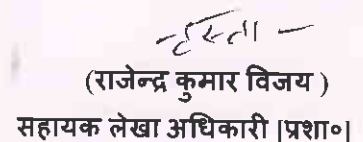 -हस्ता-
(राजेन्द्र कुमार विजय )
सहायक लेखा अधिकारी |प्रशा०|